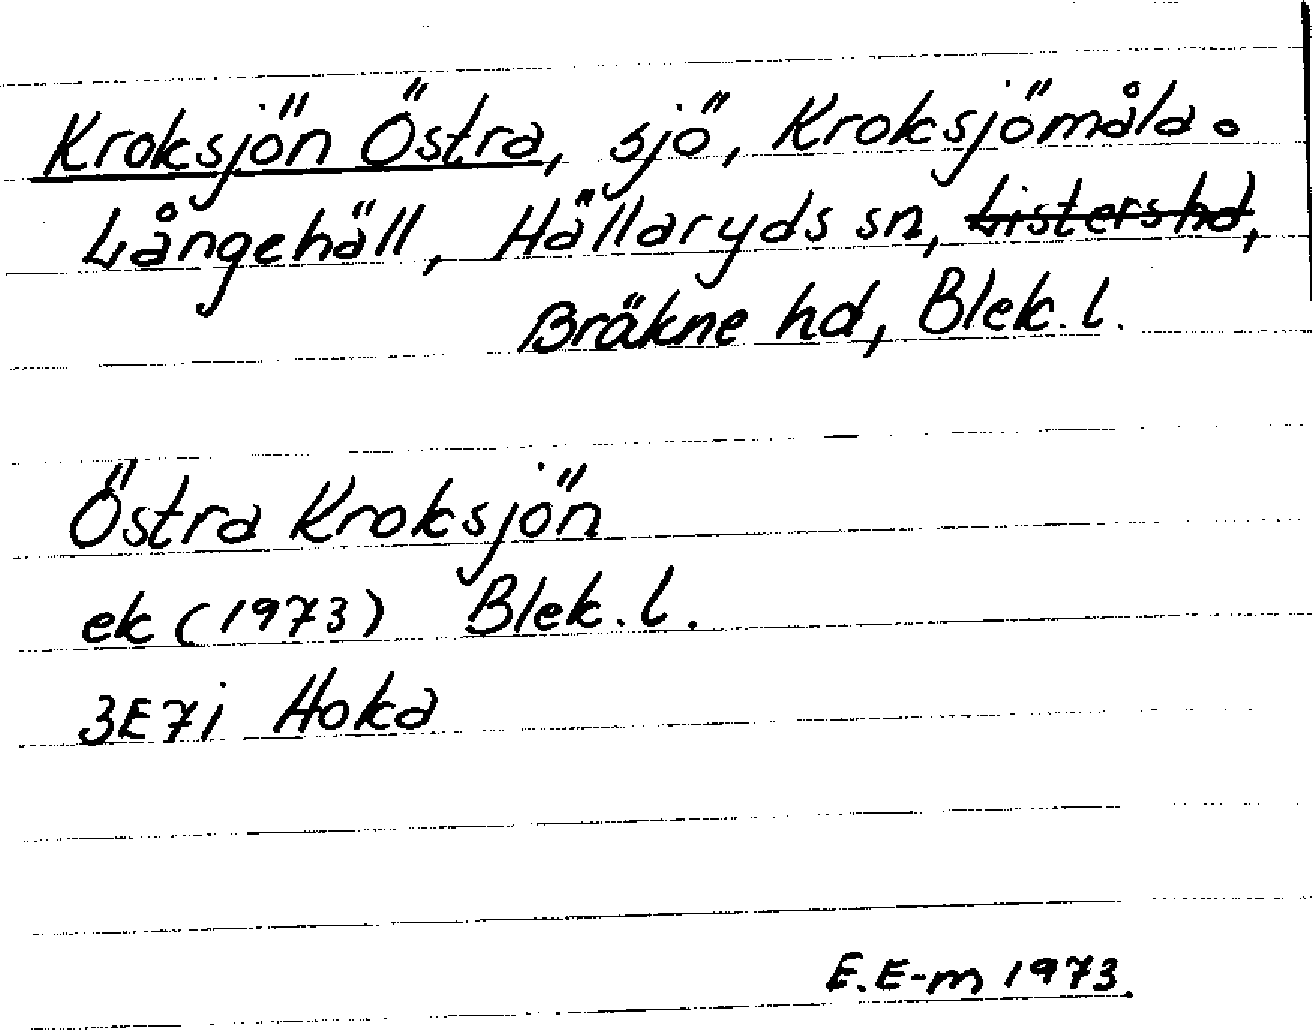 Kroksjön Östra, sjö, Kroksjömåla o
Långehäll, Hällaryds sn, Listers hd,
Bräkne hd, Blek. l.
Östra Kroksjön
ek (1973) Blek. l.
3E7i Hoka
E.E-m 1973.